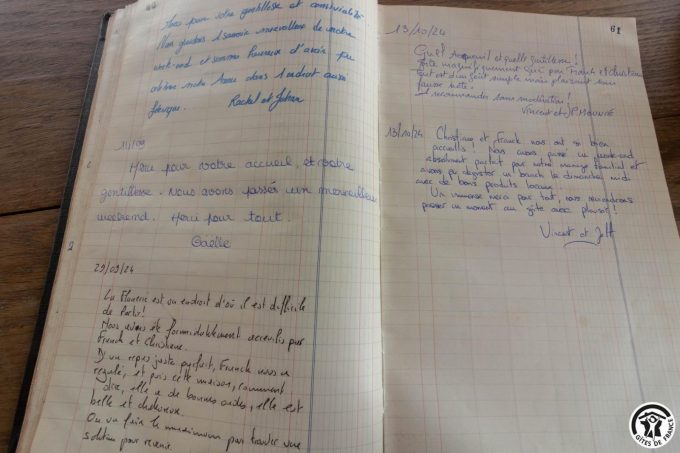 Merci pour votre gentillesse et convivialité
Nous gardons 1 souvenir merveilleux de notre
week-end et sommes heureux d'avoir pu
notre dans 1 endroit aussi
féerique. Rachel et
14/09
Merci pour votre accueil, et votre
gentillesse. Nous avons passés un merveilleux
weekend. Merci pour tout.
Gaëlle
29/09/24
La est un endroit d'où il est difficile
de partir!
Nous avons été formidablement accueillis par
Franck et Christiane.
D'un repas juste parfait, Franck nous a
régalé, et puis cette maison, comment
dire, elle a de bonnes ondes, elle est
belle et chaleureuse.
On va faire le maximum pour trouver une
solution pour revenir.
61
13/10/24
Quel accueil et quelle gentillesse!
Gîte magnifiquement par Franck et Christiane
tout est d'un goût simple mais plaisant sans
fausse note.
A recommander sans modération!
Vincent et
13/10/24 Christiane et Franck nous ont si bien
accueillis! Nous avons passé un week-end
absolument parfait pour notre mariage familial et
avons pu déguster un brunch le dimanche midi
avec de bons produits locaux.
Un immense merci pour tout, nous reviendrons
passer un moment au gîte avec plaisir!
Vincent et
GÎTES DE FRANCE